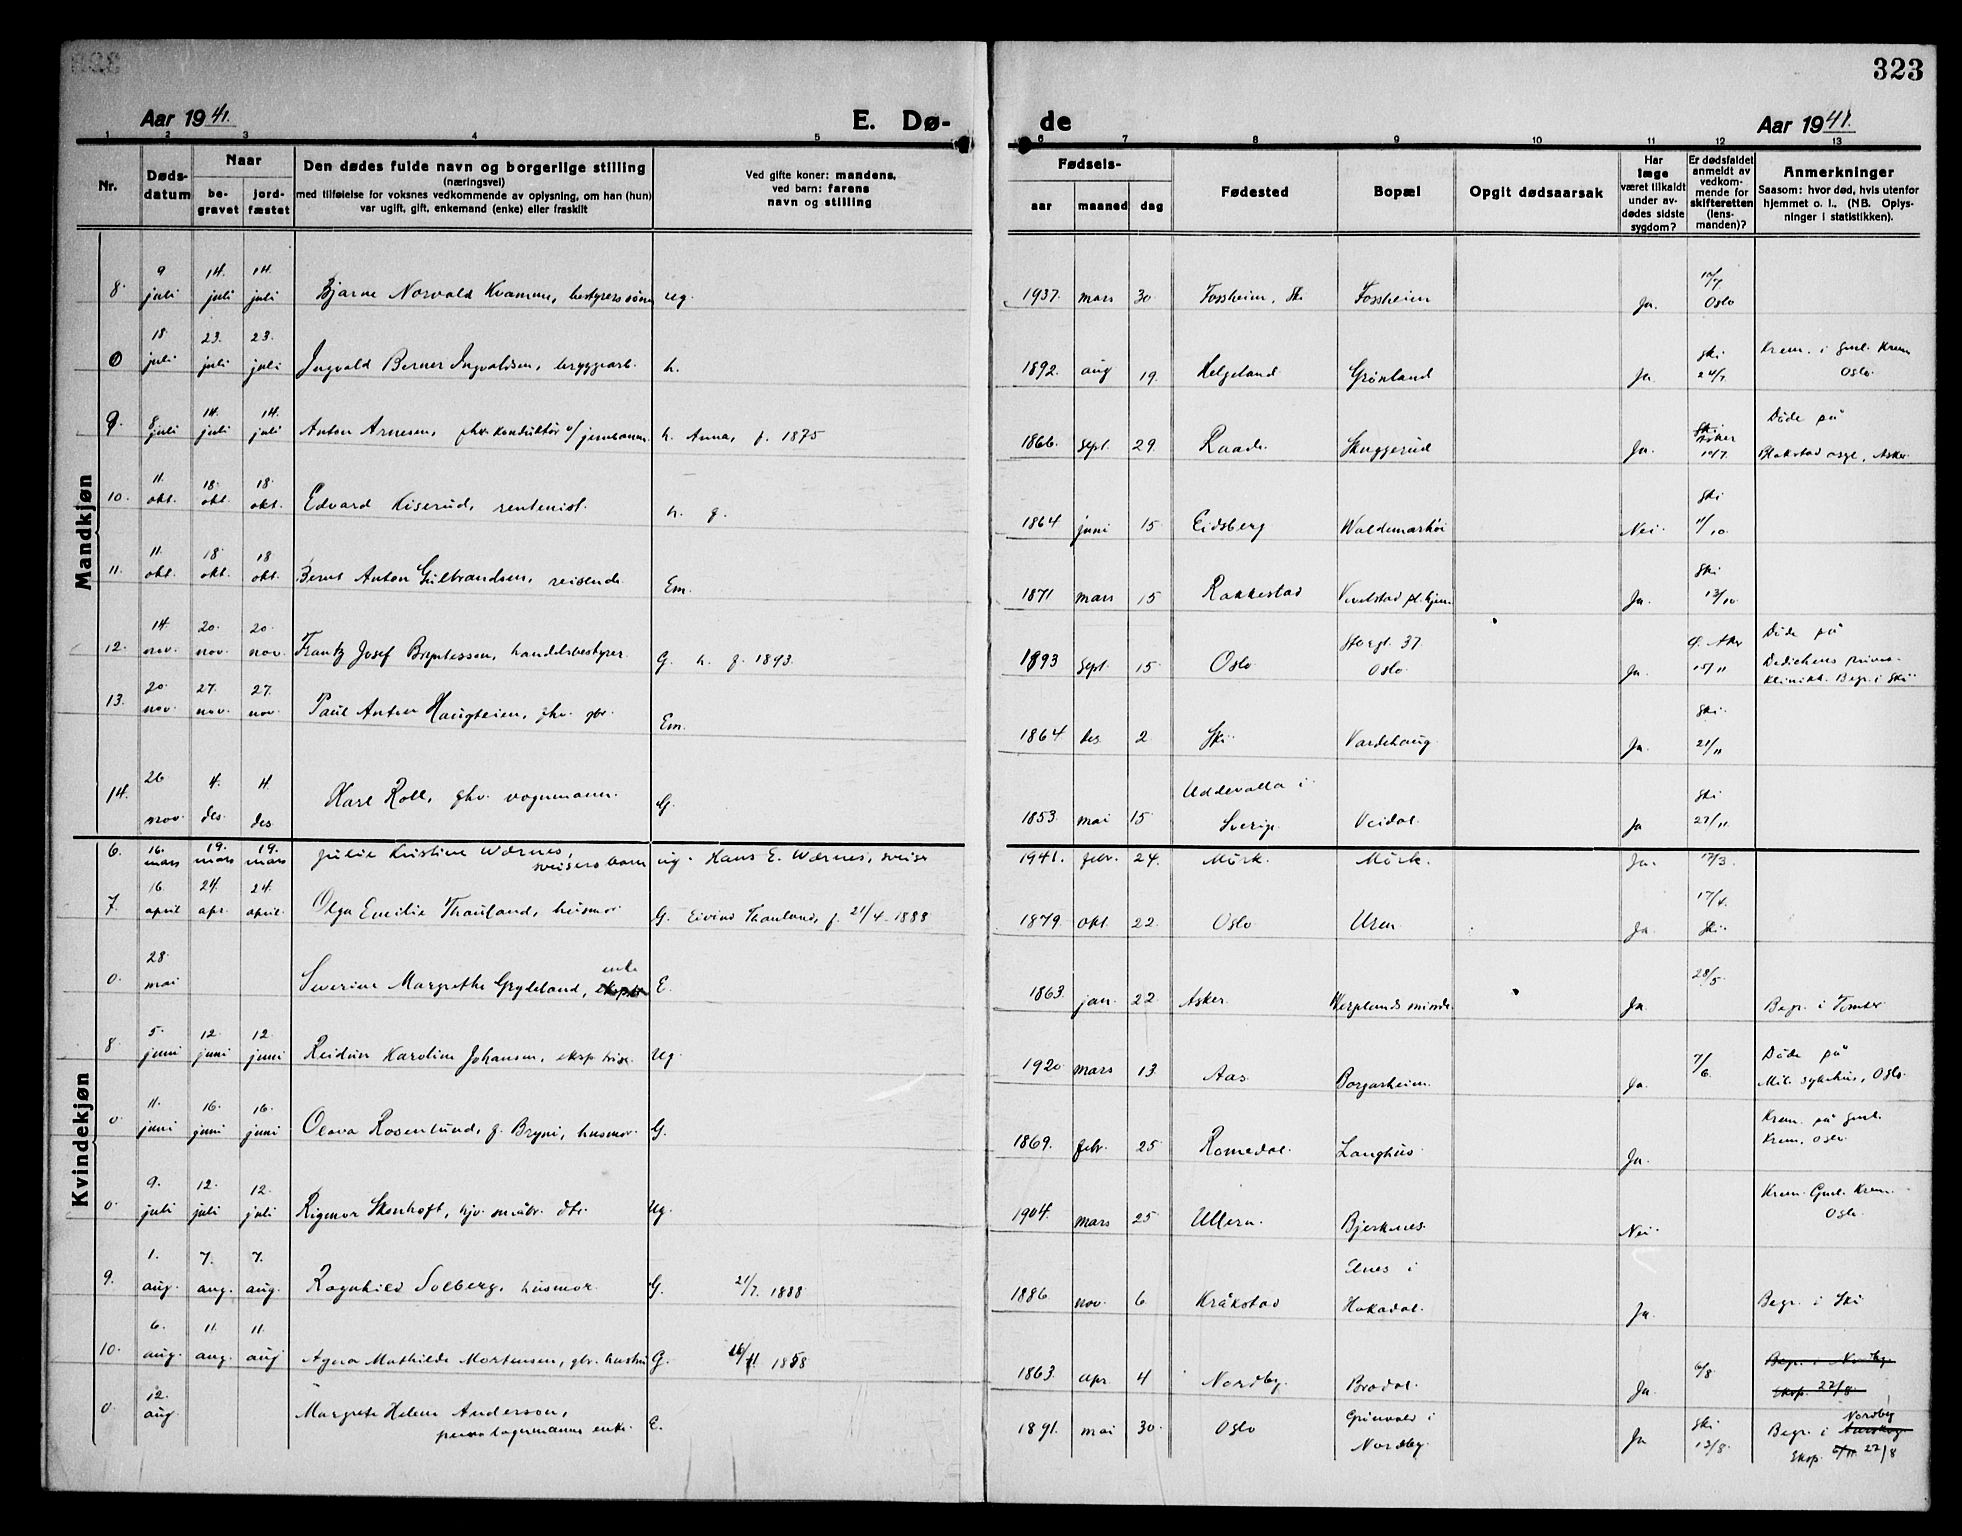 323
Aar 1941. E. Dø- de Aar 1941.
1 2 3 4 5 6 7 8 9 10 11 12 13
Nr. Døds-datum Naar be-gravet jord-fæstet Den dødes fulde navn og borgerlige stilling (næringsvei) med tilføielse for voksnes vedkommende av oplysning, om han (hun) var ugift, gift, enkemand (enke) eller fraskilt Ved gifte koner: mandens, ved barn: farens navn og stilling Fødsels- aar maaned dag Fødested Bopæl Opgit dødsaarsak Har læge været tilkaldt under av-dødes sidste sygdom? Er dødsfaldet anmeldt av vedkom-mende for skifteretten (lens-manden)? Anmerkninger Saasom: hvor død, hvis utenfor hjemmet o. l., (NB. Oplys-ninger i statistikken).
Mandkjøn
8. 9 juli 14. juli 14. juli Bjarne Norvald Kvamme, bestyrers sønn ug. 1937. mars 30 Fossheim, Ski Fossheim Ja. 10/7 Oslo
0 18. juli 23. juli 23. juli Ingvald Berner Ingvaldsen, bryggearb. h. 1892. aug 19. Helgeland Grønland Ja Ski 24/7 Krem. i Gml. Krem Oslo.
9. 8. juli 14. juli 14. juli Anton Arnesen, fhv. konduktør v/ jernbanen. h. Anna, f. 1875 1866. sept. 29. Raade. Skuggerud Ja. Ski Asker 10/7. Døde på Blakstad asyl, Asker
10. 11. okt. 18. okt. 18. okt. Edvard Kiserud, rentenist. h. g. 1864 juni 15 Eidsberg Waldemarhøi Nei Ski 11/10.
11. 11. okt. 18. okt. 18 okt. Bernt Anton Gulbrandsen, reisende Em. 1871 mars 15 Rakkestad Vevelstad pl.hjem Ja. Ski 13/10.
12. 14. nov. 20. nov. 20. nov. Frantz Josef Bryntessen, handelsbestyrer G. h. f. 1893. 1893 sept. 15. Oslo Storgt. 37. Oslo. Ja Ø. Aker 15/11 Døde på Dedichens privat-klinikk. Begr. i Ski
13. 20. nov. 27. nov. 27. nov. Paul Anton Haugteien, fhv. gbr. Em. 1864 des. 2 Ski Vardehaug. Ja Ski 21/11
14. 26 nov. 4. des. 4. des Karl Roll, fhv. vognmann. G. 1853. mai 15 Uddevalla i Sverig. Veidal. Ja Ski 27/11.
Kvindekjøn
6. 16. mars 19. mars 19. mars Julie Kristine Wærnes, sveisers barn ug. Hans E. Wærnes, sveiser 1941. febr. 24. Mørk. Mørk. Ja. 17/3.
7. 16. april 24. apr. 24. april. Olga Emilie Thauland, husmor G. Eivind Thauland, f. 21/4-1888 1879. okt. 22. Oslo Uren Ja. 17/4. Ski
0. 28. mai Severine Margrethe Gryteland, enke E. 1863. jan. 22. Asker. Werplunds minde. Ja. 28/5. Begr. i Tomter
8. 5. juni 12. juni 12. juni Reidun Karoline Johansen, eksp.trise. Ug. 1920 mars 13. Aas. Borgarheim. Ja 7/6. Døde på Mil. sykehus, Oslo.
0 11. juni 16. juni 16. juni Olava Rosenlund, f. Bryni, husmor. G. 1869. febr. 25 Romedal. Langhus Ja. Krem. på Gml. Krem. Oslo
0. 9. juli 12. juli 12. juli Rigmor Skenhoft, hjv. småbr. dtr. Ug. 1904. mars 25 Ullern. Bjerknes. Nei Krem. Gml. Krem. Oslo.
9. 1. aug. 7. aug. 7. aug. Ragnhild Solberg, husmor G. 21/7. 1888 1886 nov. 6 Kråkstad Elnes i Hakadal. Ja. Begr. i Ski
10. 6. aug. 11. aug. 11. aug Agna Mathilde Mortensen, gbr. hustru G. 26/11 1858 1863. apr. 4 Nordby. Bradal. Ja 6/8 Begr. i Nordby Eksp. 22/8
0. 12. aug. Margrete Helene Anderson, enke. E. 1891. mai 30. Oslo Grinvold i Nordby. Ja Ski 13/8. Begr. i Nordby Eksp. 22/8